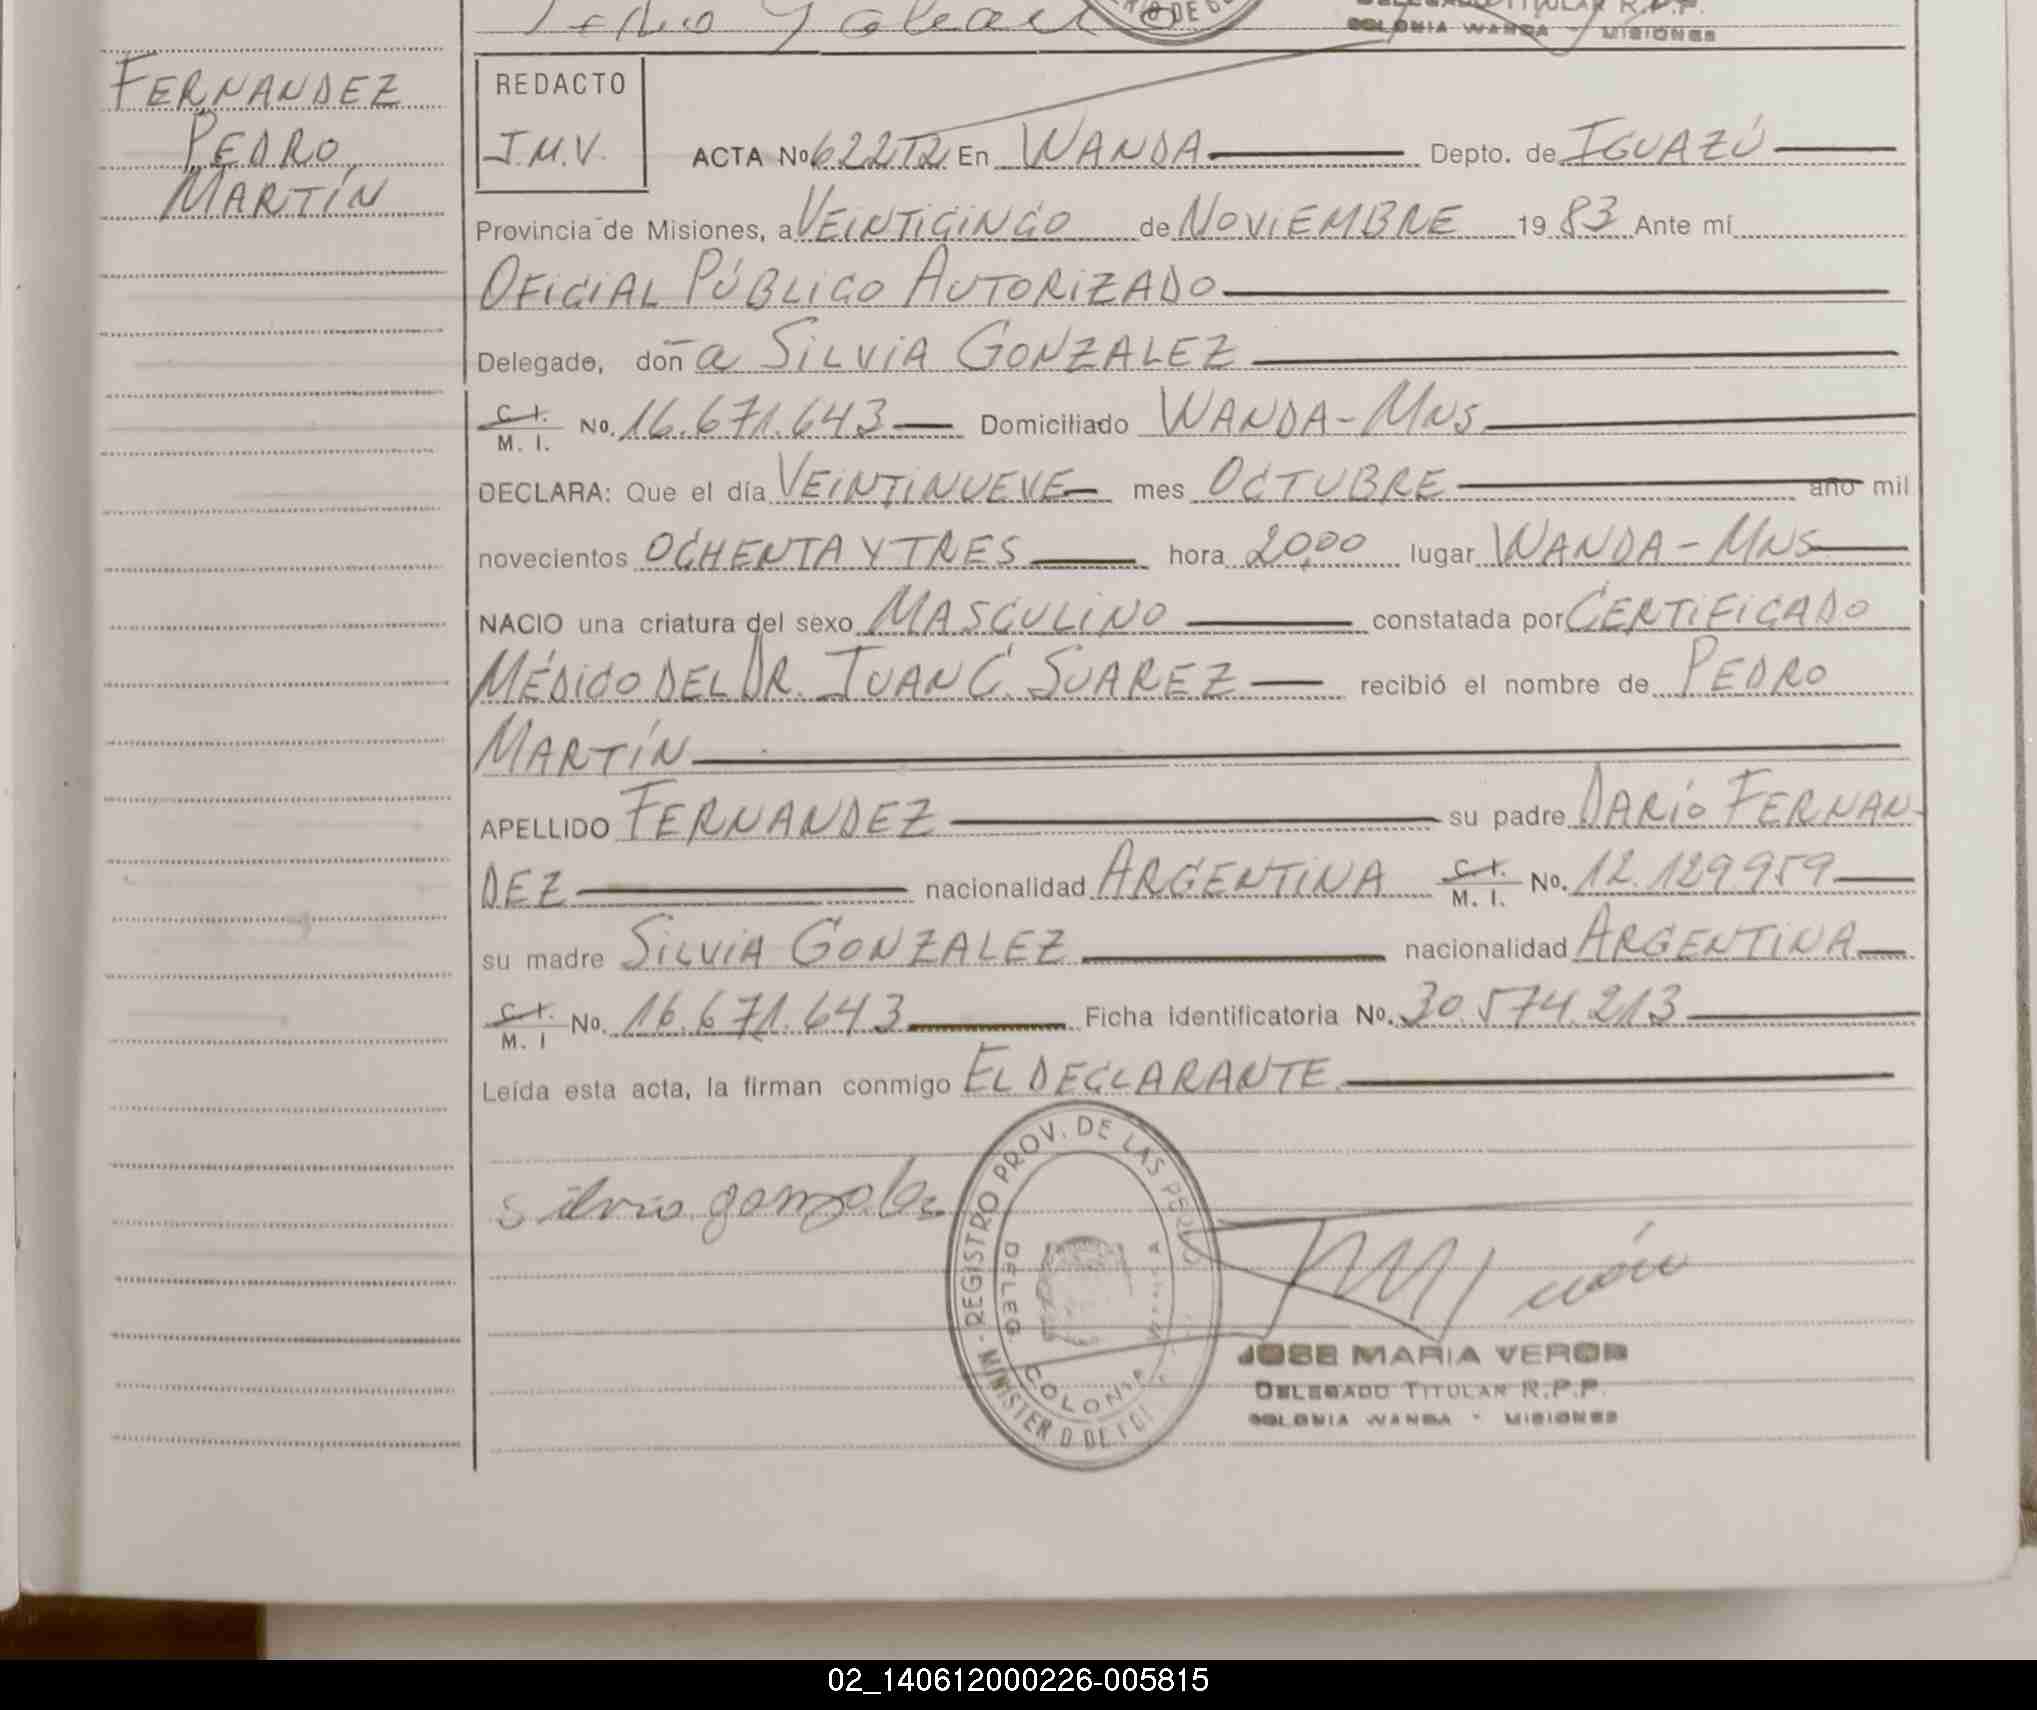 COLONIA WANDA - MISIONES
FERNANDEZ
PEDRO
MARTÍN
REDACTO
J.M.V.
ACTA No 622T2 En WANDA Depto. de IGUAZÚ
Provincia de Misiones, a VEINTICINCO de NOVIEMBRE 19 83 Ante mí
OFICIAL PÚBLICO AUTORIZADO
Delegado, don a SILVIA GONZALEZ
C. I. M. I. No. 16.671.643 Domiciliado WANDA-MNS
DECLARA: Que el día VEINTINUEVE mes OCTUBRE año mil
novecientos OCHENTA Y TRES hora 20,00 lugar WANDA-MNS
NACIO una criatura del sexo MASCULINO constatada por CERTIFICADO
MÉDICO DEL DR. JUAN C. SUAREZ recibió el nombre de PEDRO
MARTÍN
APELLIDO FERNANDEZ su padre DARÍO FERNAN-
DEZ nacionalidad ARGENTINA C. I. M. I. No. 12.129959
su madre SILVIA GONZALEZ nacionalidad ARGENTINA
C. I. M. I No. 16.671.643 Ficha identificatoria No. 30.574.213
Leída esta acta, la firman conmigo EL DECLARANTE
silvia gonzalez
REGISTRO PROV. DE LAS PERSO
DELEG. COLONIA WANDA
JOSE MARIA VERON
DELEGADO TITULAR R.P.P.
COLONIA WANDA - MISIONES
02_140612000226-005815